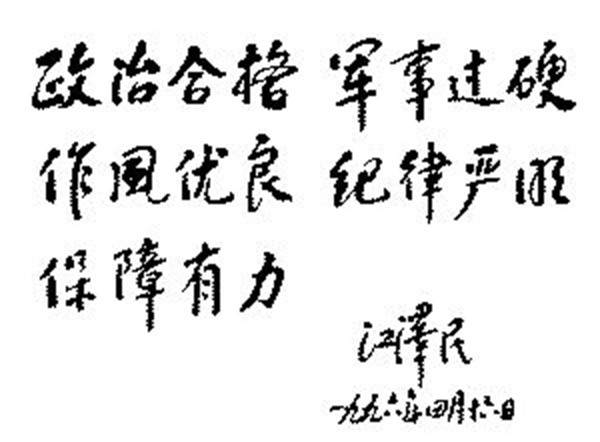 政治合格 军事过硬
作风优良 纪律严明
保障有力
江泽民
一九九六年四月十六日